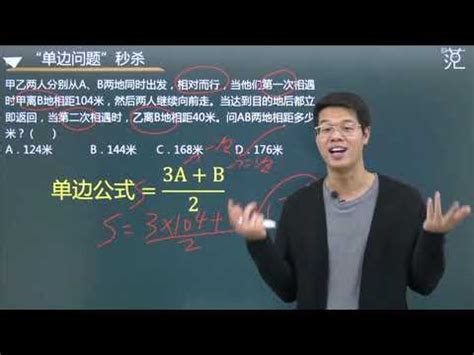 “单边问题”秒杀
说
甲乙两人分别从A、B两地同时出发，相对而行，当他们第一次相遇
时甲离B地相距104米，然后两人继续向前走。当达到目的地后都立
即返回，当第二次相遇时，乙离B地相距40米。问AB两地相距多少
米？( )
A．124米 B．144米 C．168米 D．176米
单边公式=3A+B/2
S=3×104+/2